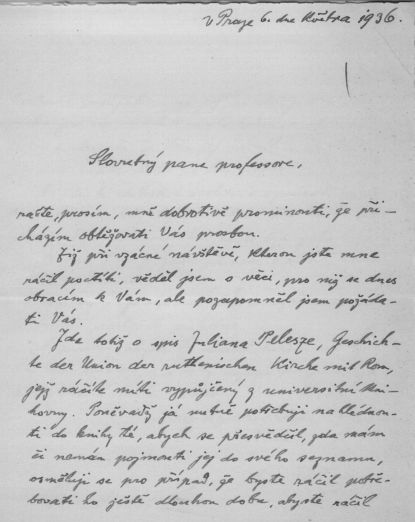 v Praze 6. dne května 1936.
Slovutný pane professore,
račte, prosím, mně dobrotivě prominouti, že při-
cházím obtěžovati Vás prosbou.
Již při vzácné návštěvě, kterou jste mne
ráčil poctíti, věděl jsem o věci, pro niž se dnes
obracím k Vám, ale pozapomněl jsem požáda-
ti Vás.
Jde totiž o spis Juliana Pelesze, Geschich-
te der Union der ruthenischen Kirche mit Rom,
jejž ráčíte míti vypůjčený z universitní kni-
hovny. Poněvadž já nutně potřebuji nahlédnou-
ti do knihy té, abych se přesvědčil, zda mám
či nemám pojmouti jej do svého seznamu,
osměluji se pro případ, že byste ráčil potře-
bovati ho ještě dlouhou dobu, abyste ráčil